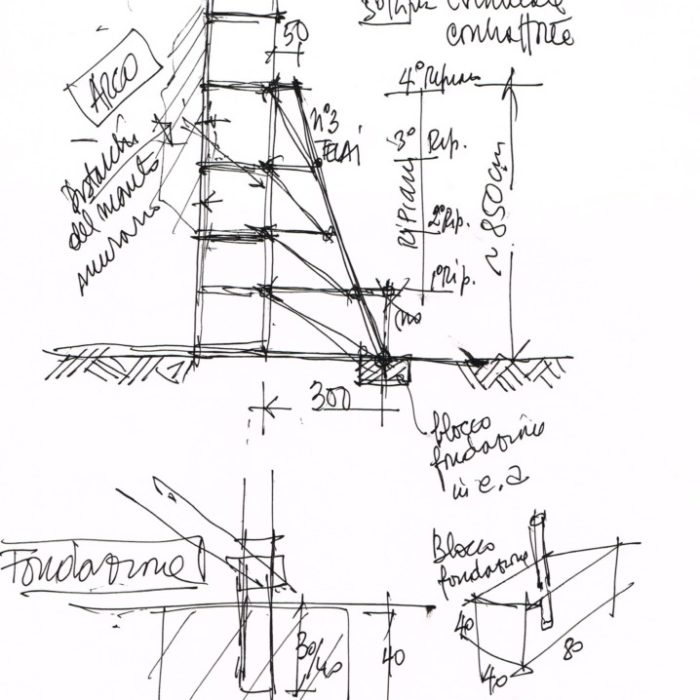 contrasto
50
ARCO
n°3
TELAI
4° Ripiano
3° Rip.
Ripiani
2° Rip.
1° Rip.
~ 850 cm
del manto
murario
300
blocco
fondazione
in c.a
Fondazione
30/40
40
Blocco
fondazione
40
40
80